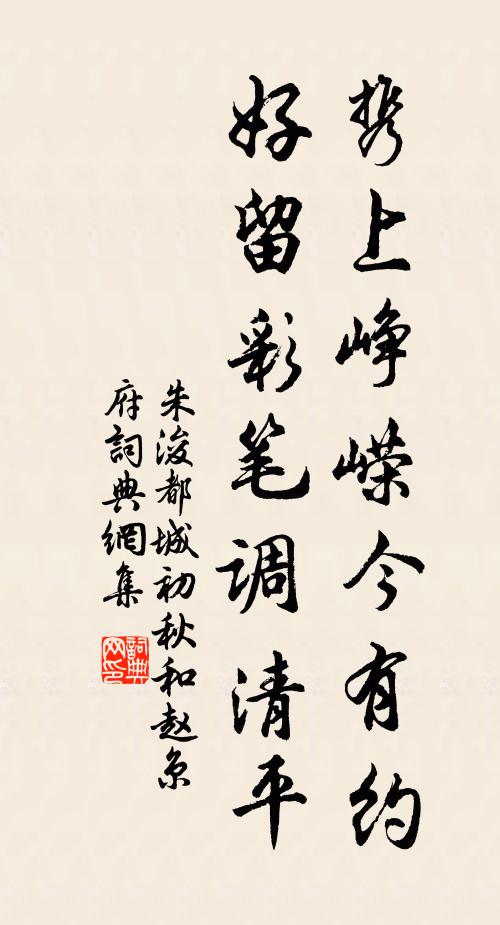 携上峥嵘今有约
好留彩笔调清平
朱浚都城初秋和赵京
府詞典網集
詞典网印